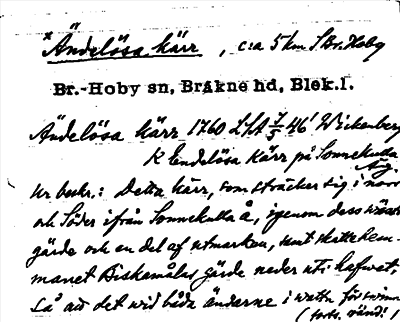 ×Ändelösa kärr, c:a 5 km S Br. Hoby
Br.-Hoby sn, Bräkne hd, Blek.l.
Ändelösa kärr 1760 LSA 7/5 46' Wickenberg
K Endelösa Kärr på Sonnekulla äg.
Ur beskr.: Detta kärr, som sträcker sig i norr
och Söder ifrån Sonnekulla å, igenom dess
gärde och en del af utmarken, samt skattehem-
manet Biskamåla gärde neder uti hafwet,
Så att det wid båda ändarne i wattn
(forts. vänd!)